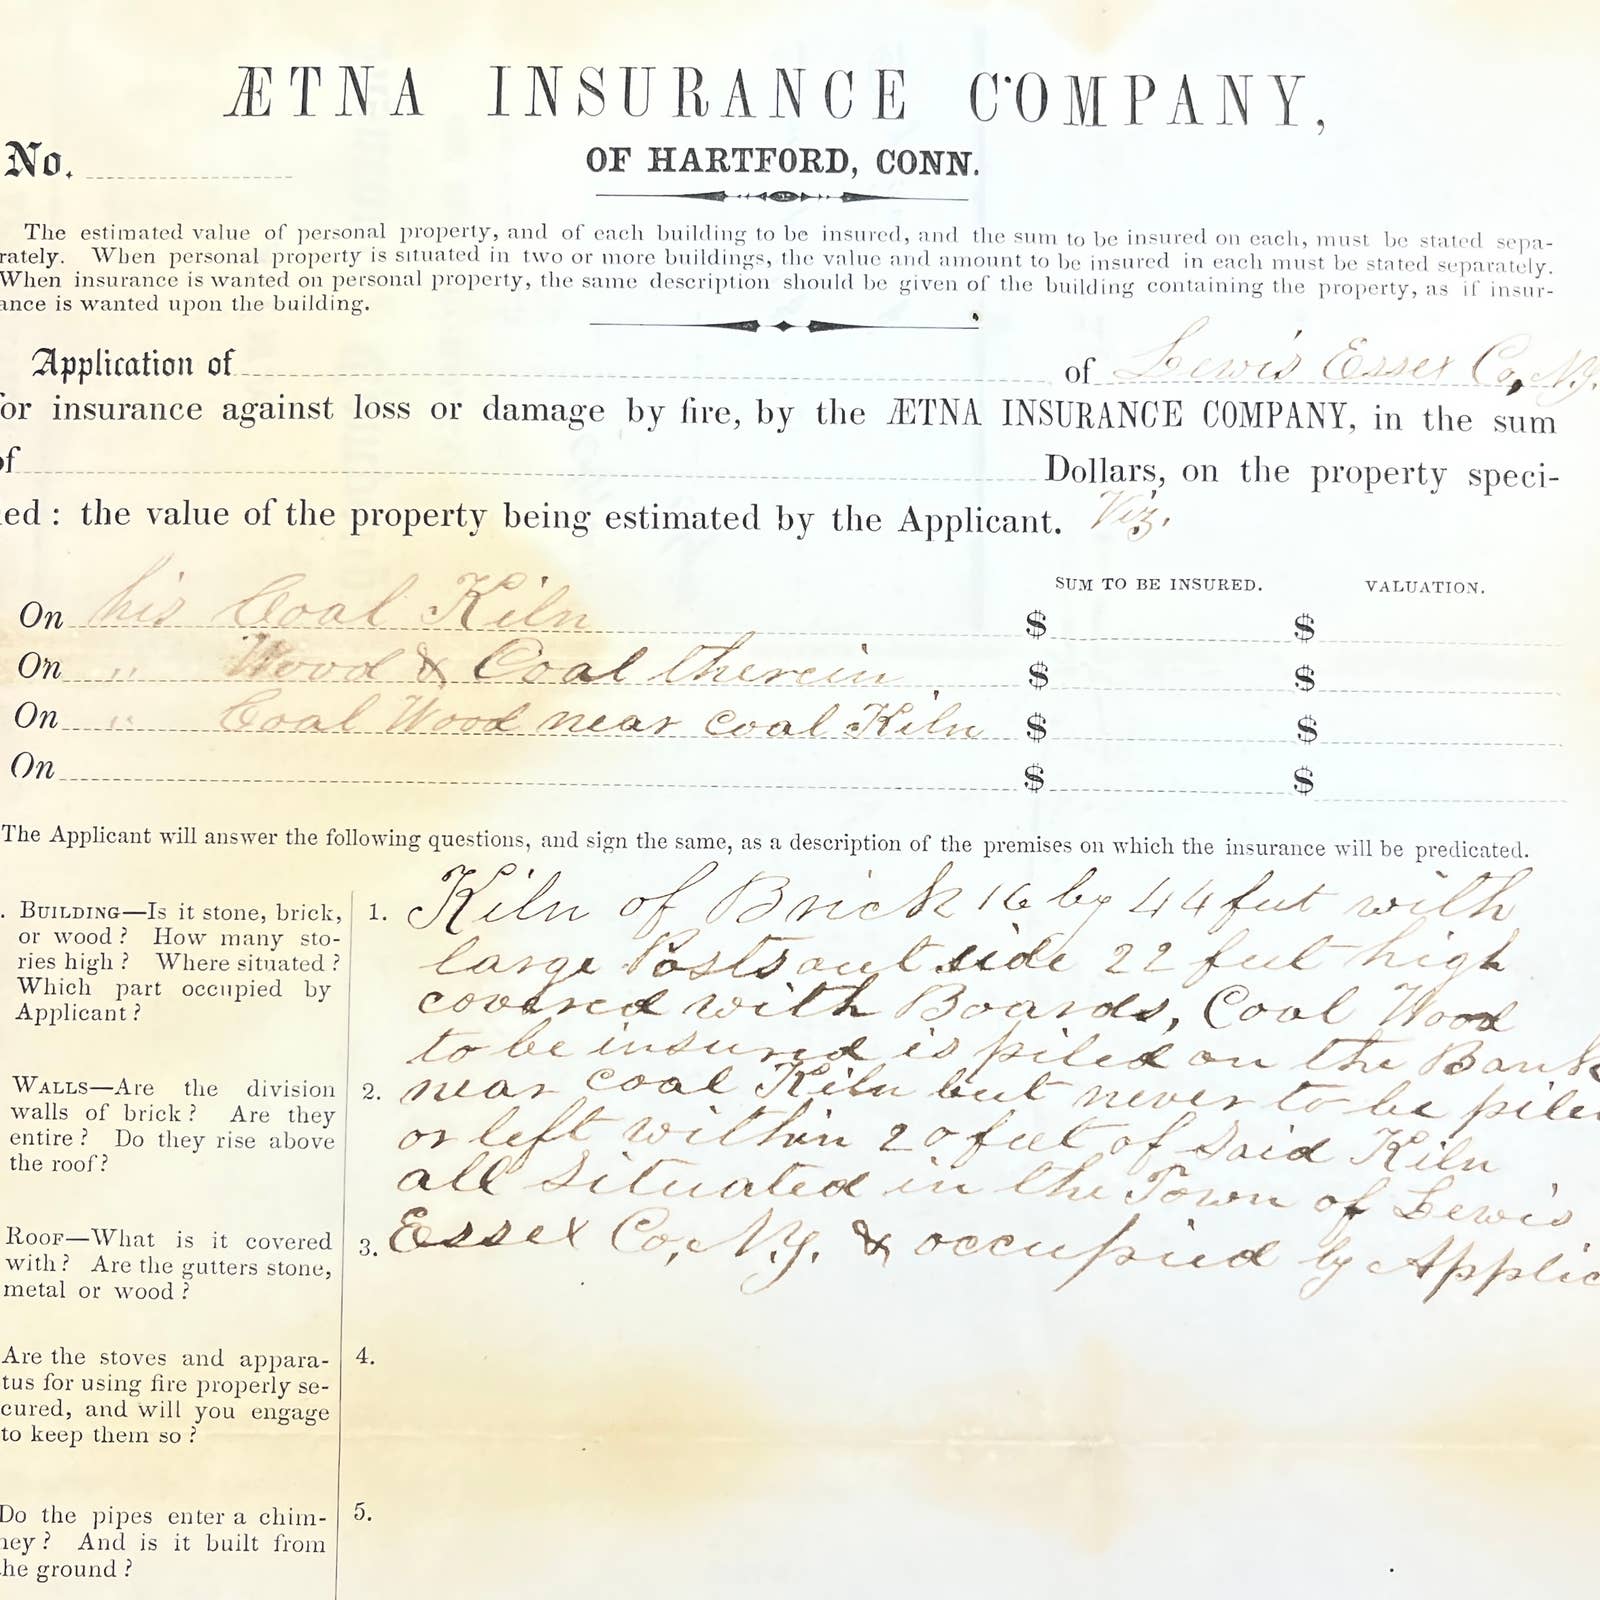 ÆTNA INSURANCE COMPANY,
No.
OF HARTFORD, CONN.
The estimated value of personal property, and of each building to be insured, and the sum to be insured on each, must be stated sepa-
rately. When personal property is situated in two or more buildings, the value and amount to be insured in each must be stated separately.
When insurance is wanted on personal property, the same description should be given of the building containing the property, as if insur-
ance is wanted upon the building.
Application of of Lewis Essex Co, N.Y.
for insurance against loss or damage by fire, by the ÆTNA INSURANCE COMPANY, in the sum
of Dollars, on the property speci-
ied: the value of the property being estimated by the Applicant. Viz.
SUM TO BE INSURED. VALUATION.
On his Coal Kiln $ $
On " Wood & Coal therein $ $
On " Coal Wood near coal Kiln $ $
On $ $
The Applicant will answer the following questions, and sign the same, as a description of the premises on which the insurance will be predicated.
. BUILDING—Is it stone, brick,
or wood? How many sto-
ries high? Where situated?
Which part occupied by
Applicant?
1. Kiln of Brick 16 by 44 feet with
large Posts out side 22 feet high
covered with Boards, Coal Wood
to be insured is piled on the Bank
WALLS—Are the division
walls of brick? Are they
entire? Do they rise above
the roof?
2. near coal Kiln but never to be piled
or left within 20 feet of said Kiln
all situated in the Town of Lewis
ROOF—What is it covered
with? Are the gutters stone,
metal or wood?
3. Essex Co, N.Y. & occupied by Applic
Are the stoves and appara-
tus for using fire properly se-
cured, and will you engage
to keep them so?
4.
Do the pipes enter a chim-
ney? And is it built from
the ground?
5.